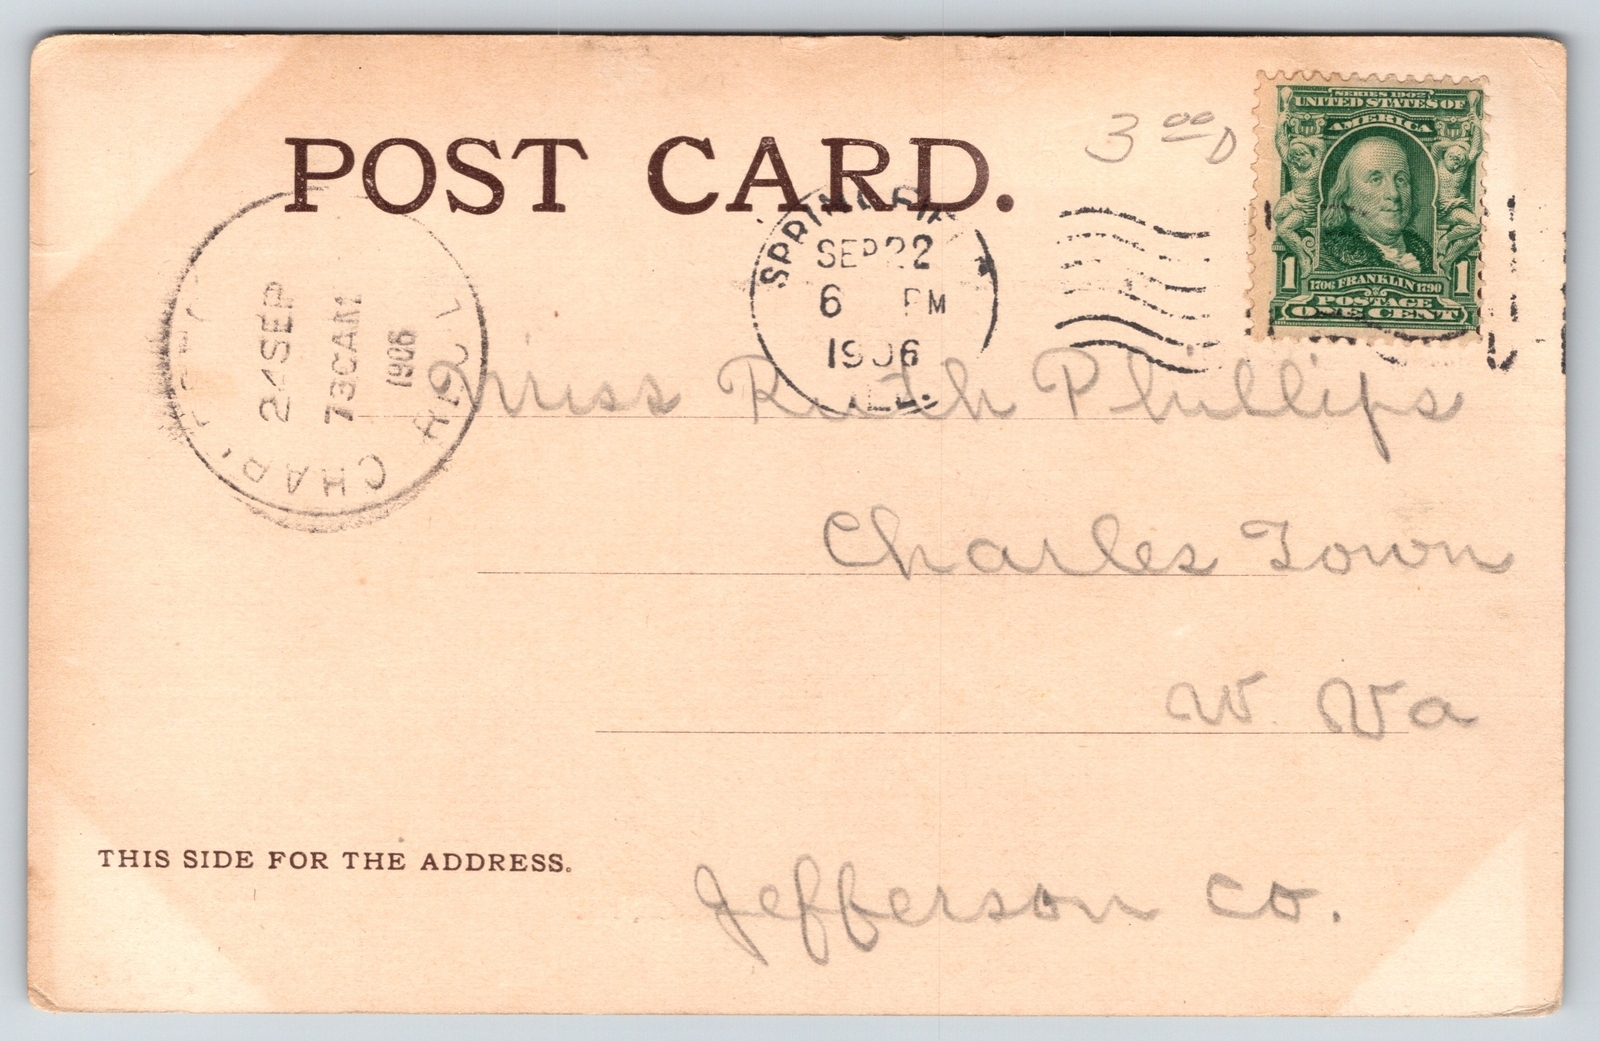 POST CARD.
3 00 D
SERIES 1902
UNITED STATES OF
AMERICA
1 1706 FRANKLIN 1790 1
POSTAGE
ONE CENT
SEP 22
6 PM
1906
ILL.
24 SEP
730AM
1906
Miss Ruth Phillips
Charles Town
W. Va
THIS SIDE FOR THE ADDRESS.
Jefferson Co.